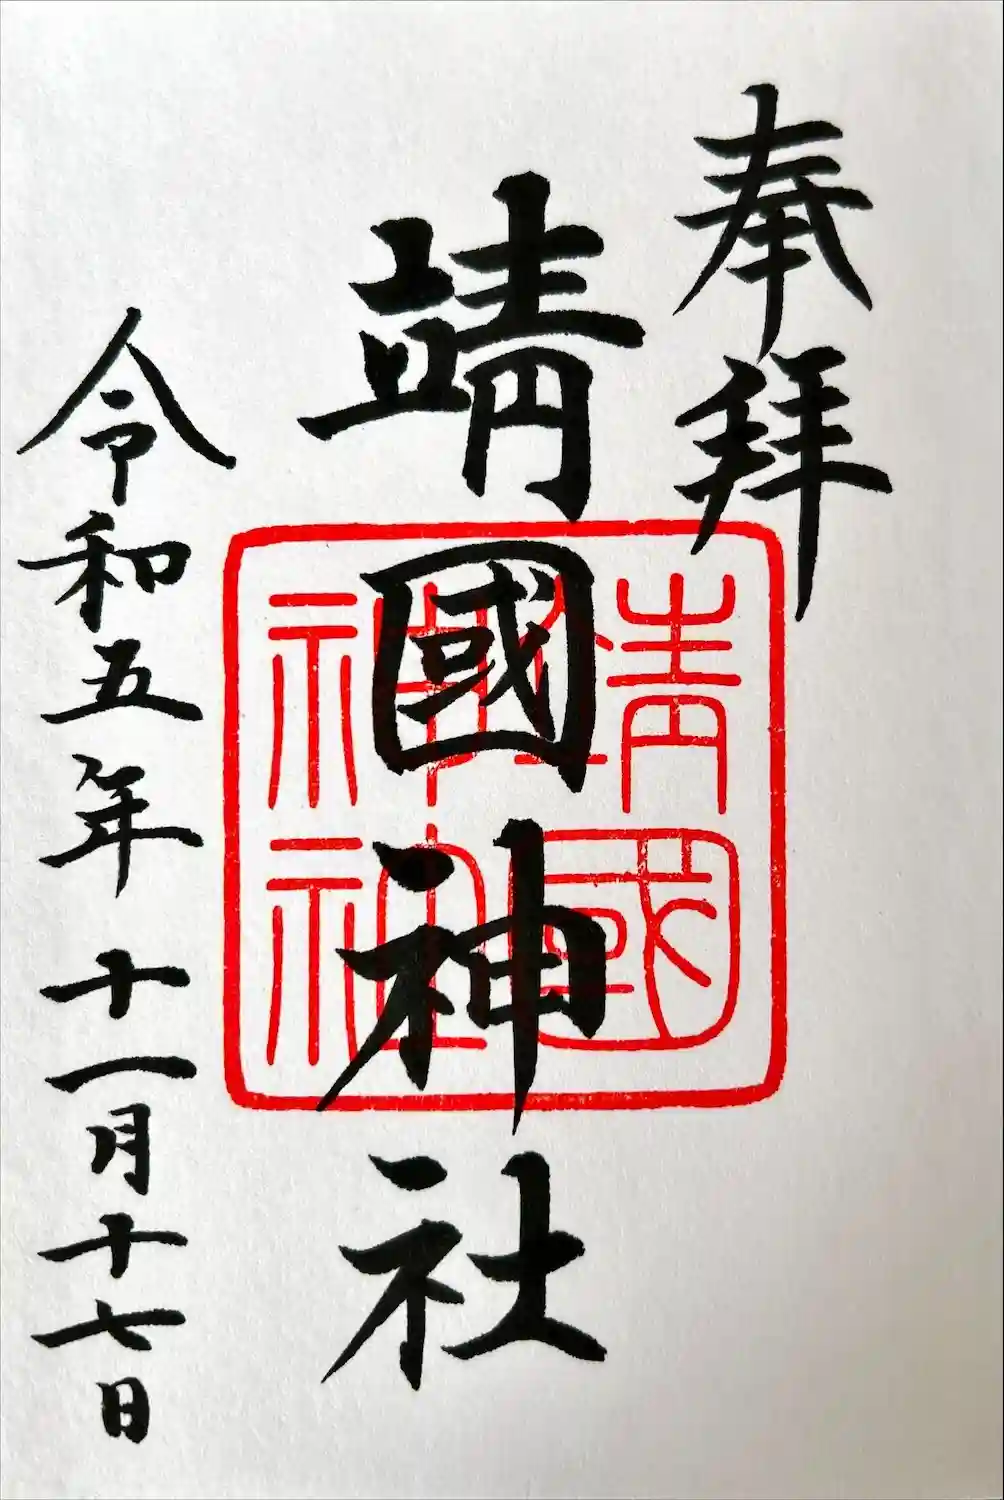 奉拝
靖國神社
靖國
神社
令和五年十一月十七日